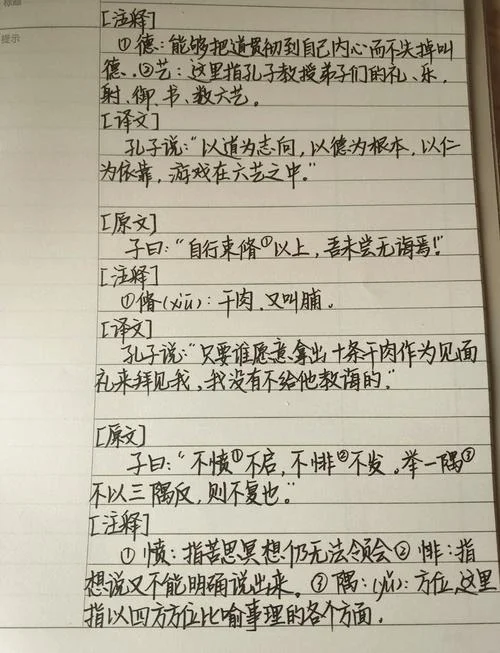 标题
提示
[注释]
①德:能够把道贯彻到自己内心而不失掉叫
德。②艺:这里指孔子教授弟子们的礼、乐、
射、御、书、数六艺。
[译文]
孔子说:“以道为志向,以德为根本,以仁
为依靠,游戏在六艺之中。”
[原文]
子曰:“自行束脩①以上,吾未尝无诲焉!”
[注释]
①脩(xiū):干肉,又叫脯。
[译文]
孔子说:“只要谁愿意拿出十条干肉作为见面
礼来拜见我,我没有不给他教诲的。”
[原文]
子曰:“不愤①不启,不悱②不发。举一隅③
不以三隅反,则不复也。”
[注释]
①愤:指苦思冥想仍无法领会②悱:指
想说又不能明确说出来。③隅:(yú):方位,这里
指以四方方位比喻事理的各个方面。